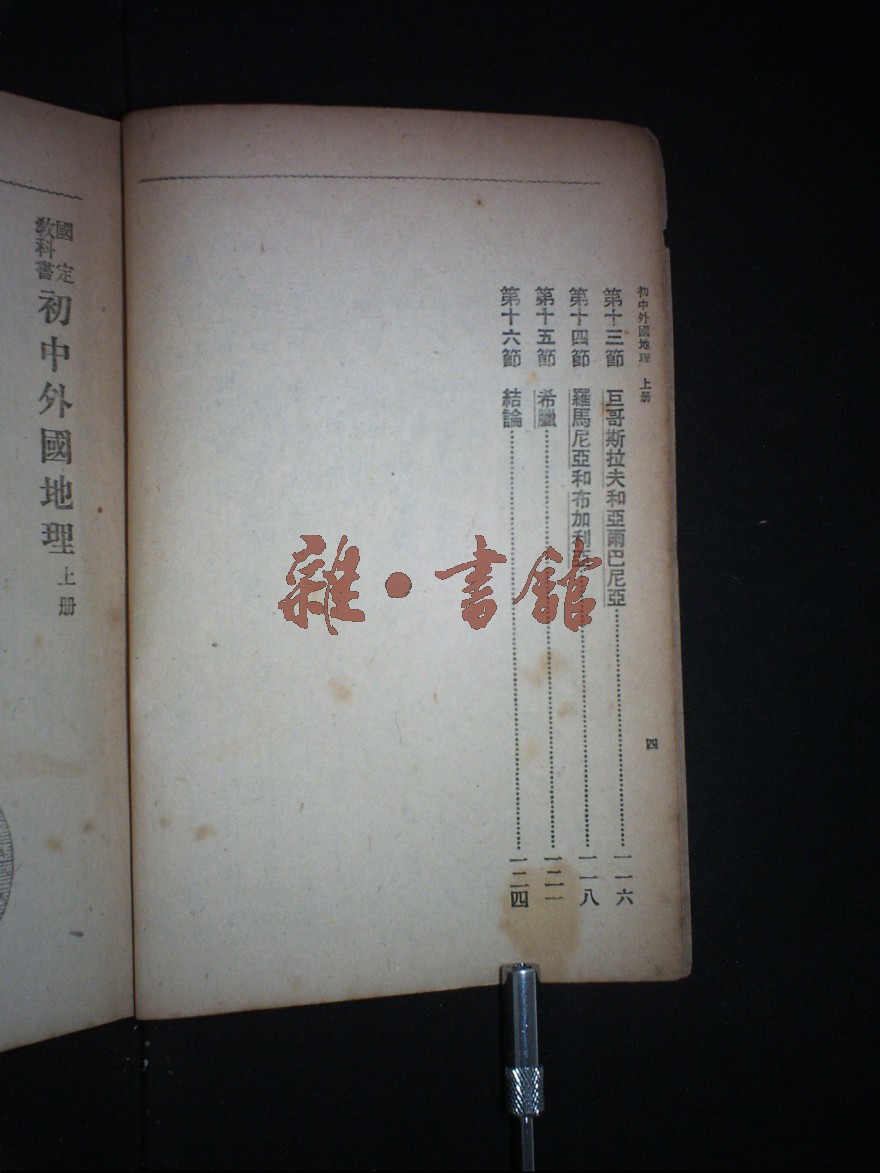 初中外國地理 上册
四
第十三節 巨哥斯拉夫和亞爾巴尼亞 一一六
第十四節 羅馬尼亞和布加利亞 一一八
第十五節 希臘 一二一
第十六節 結論 一二四
雜•書館
國定教科書 初中外國地理 上册